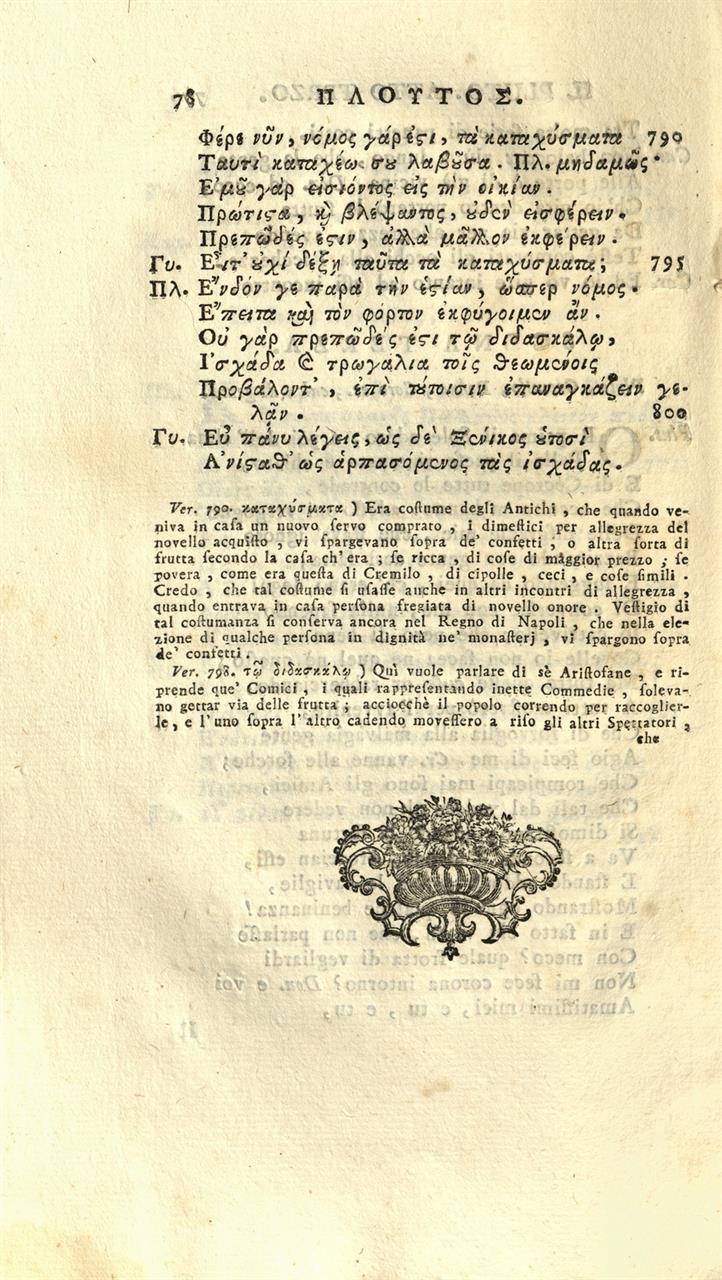 78 ΠΛΟΥΤΟΣ.
Φέρε νῦν, νόμος γάρ ἐϛι, τὰ καταχύσματα 790
Ταυτὶ καταχέω σȣ λαβȣ͂σα. Πλ. μηδαμῶς·
Ε᾿μȣ͂ γὰρ εἰσιόντος εἰς τὴν οἰκίαν.
Πρώτιϛα, ϗ βλέψαντος, ȣ᾿δὲν εἰσφέρειν.
Πρεπῶδές ἐϛιν, ἀλλὰ μᾶλλον ἐκφέρειν.
Γυ. Εἶτ' ȣ᾿χί δέξῃ ταῦτα τὰ καταχύσματα; 795
Πλ. Ε῎νδόν γε παρὰ τὴν ἑϛίαν, ὥσπερ νόμος.
Ε῎πειτα καὶ τὸν φόρτον ἐκφύγοιμεν ἄν.
Οὐ γὰρ πρεπῶδές ἐϛι τῷ διδασκάλῳ,
Ι᾿σχάδα ϗ τρωγάλια τοῖς θεωμένοις
Προβάλοντ', ἐπὶ τȣ́τοισιν ἐπαναγκάζειν γε-
λᾶν. 800
Γυ. Εὖ πάνυ λέγεις, ὡς δὲ Ξένικος ȣ῾τοσὶ
Α᾿νίϛαθ' ὡς ἁρπασόμενος τὰς ἰσχάδας.
Ver. 790. καταχύσματα ) Era coſtume degli Antichi, che quando ve-
niva in caſa un nuovo ſervo comprato, i dimeſtici per allegrezza del
novello acquiſto, vi ſpargevano ſopra de' confetti, o altra ſorta di
frutta ſecondo la caſa ch'era; ſe ricca, di coſe di maggior prezzo; ſe
povera, come era queſta di Cremilo, di cipolle, ceci, e coſe ſimili.
Credo, che tal coſtume ſi uſaſſe anche in altri incontri di allegrezza,
quando entrava in caſa perſona fregiata di novello onore. Veſtigio di
tal coſtumanza ſi conſerva ancora nel Regno di Napoli, che nella ele-
zione di qualche perſona in dignità ne' monaſterj, vi ſpargono ſopra
de' confetti.
Ver. 798. τῷ διδασκάλῳ ) Quì vuole parlare di sè Ariſtofane, e ri-
prende que' Comici, i quali rappreſentando inette Commedie, ſoleva-
no gettar via delle frutta; acciocchè il popolo correndo per raccoglier-
le, e l'uno ſopra l'altro cadendo moveſſero a riſo gli altri Spettatori,
che